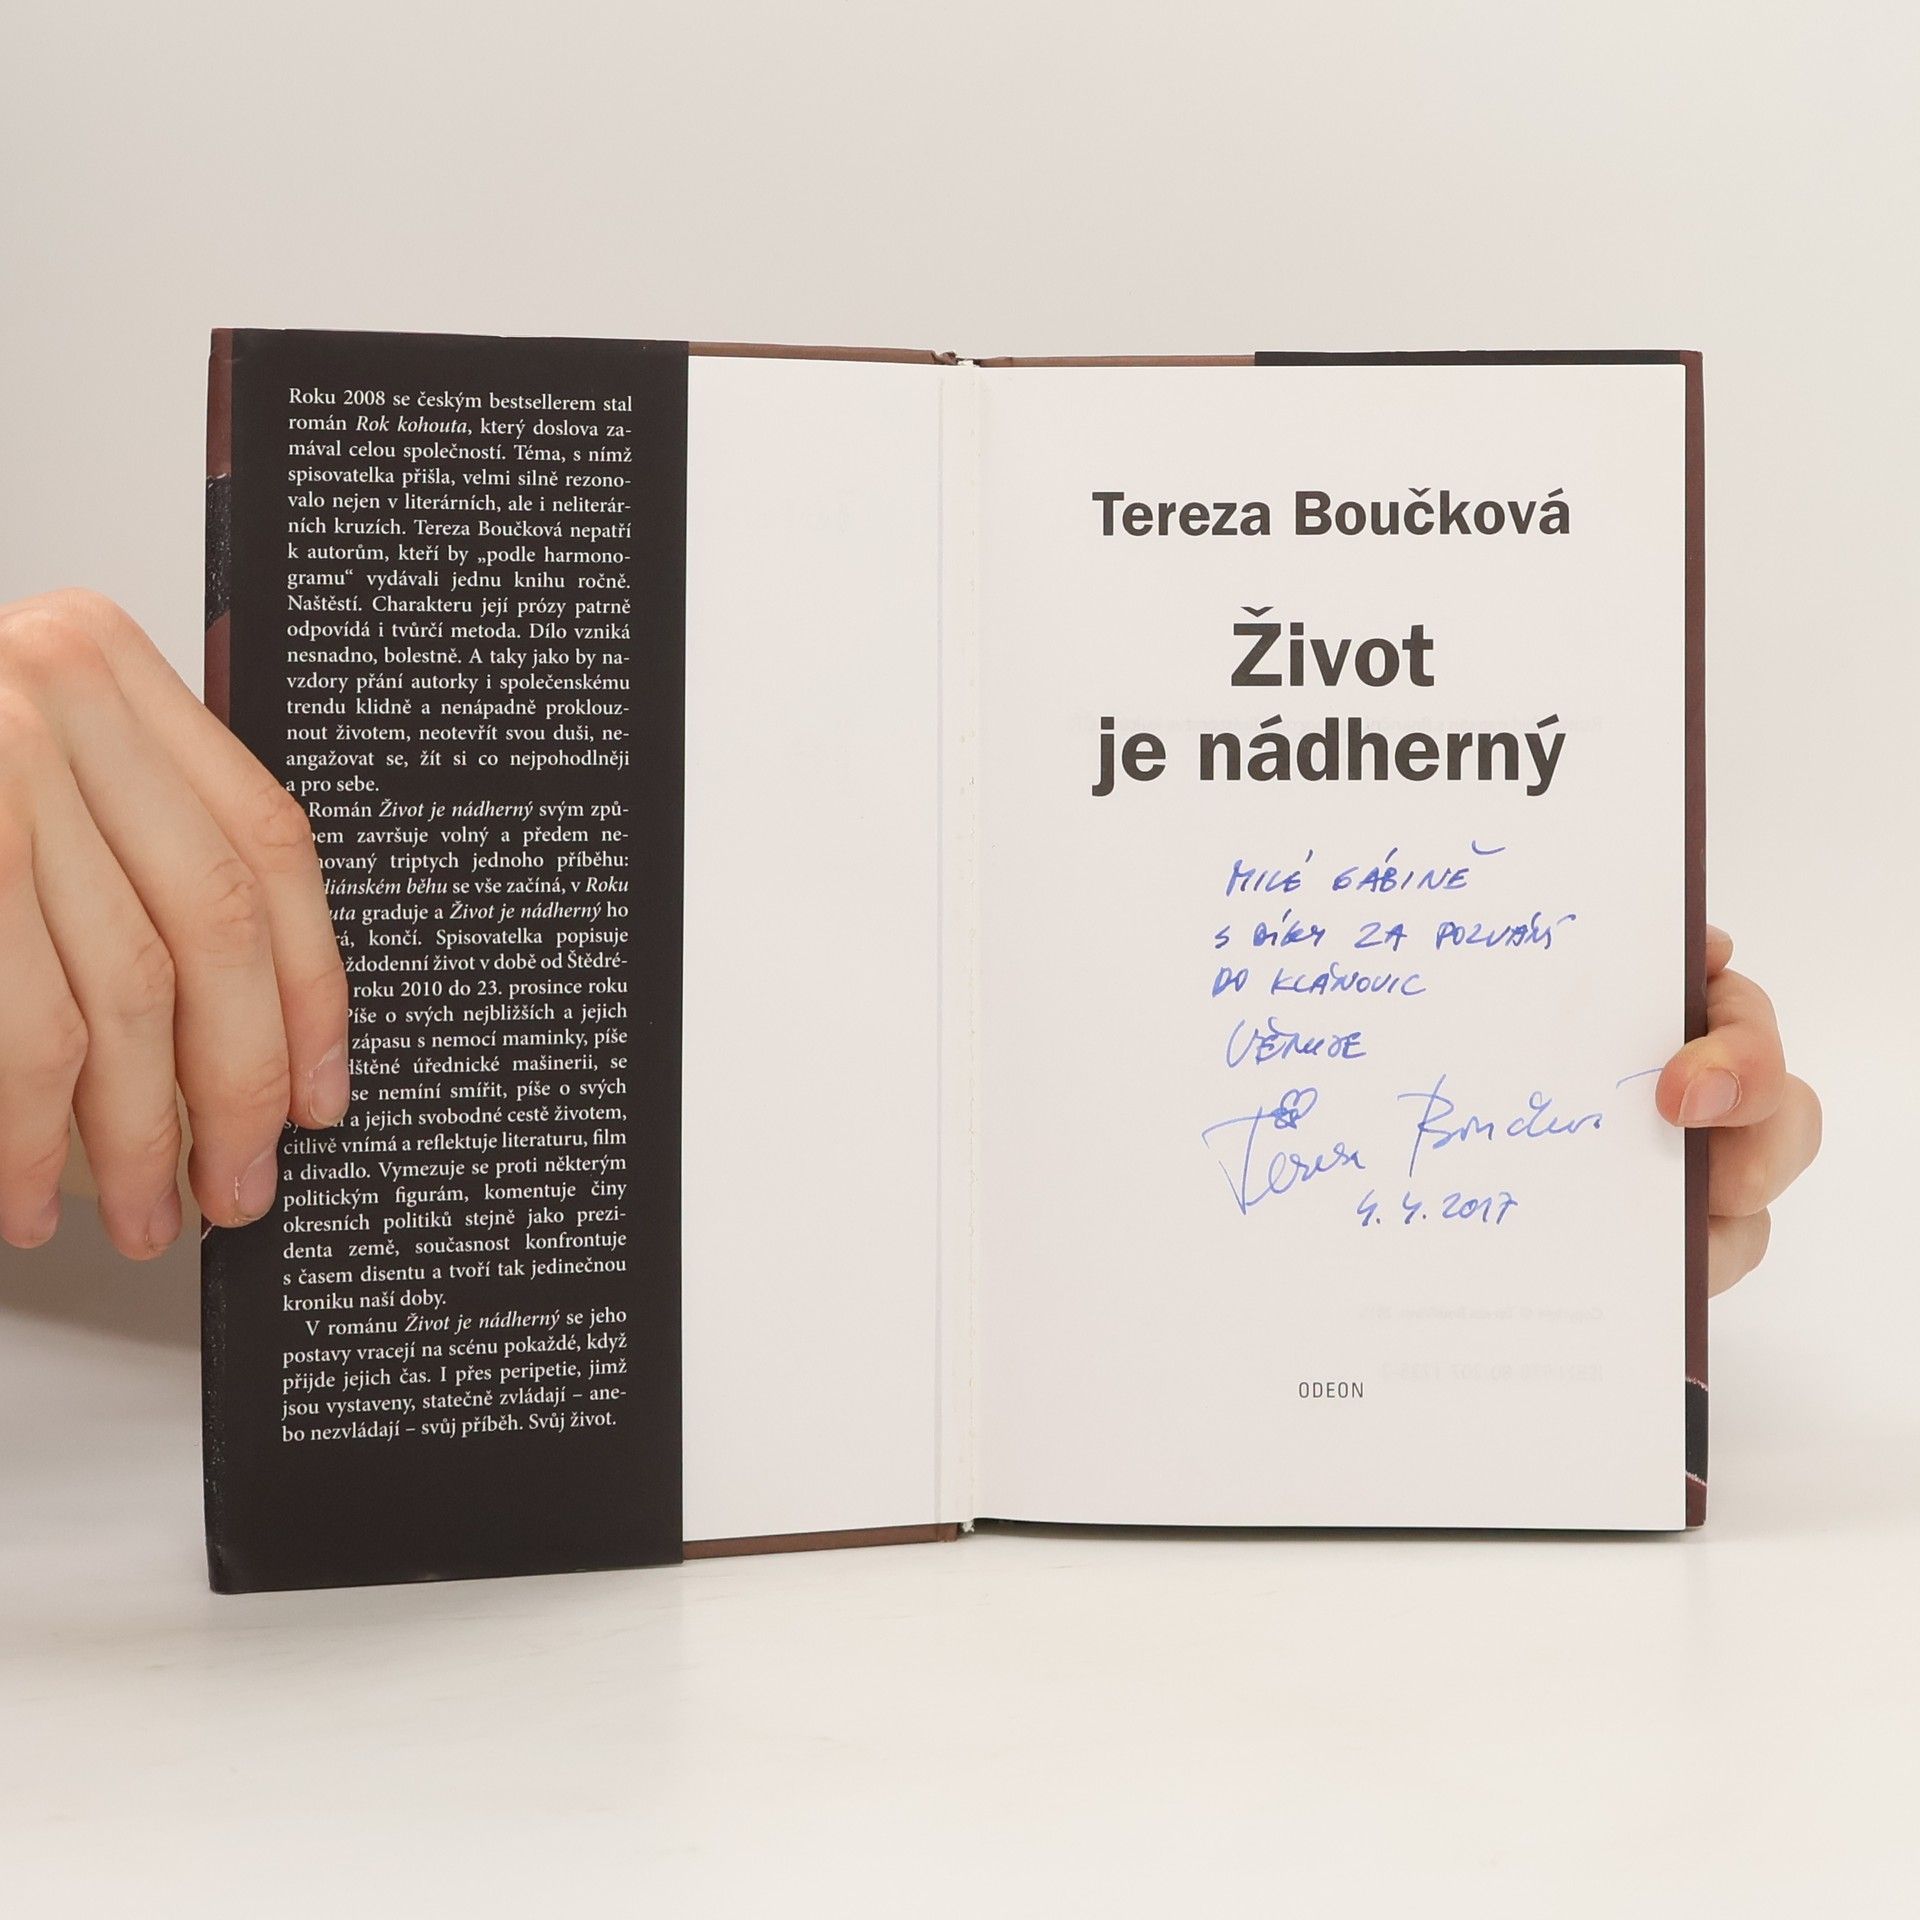 Roku 2008 se českým bestsellerem stal
román Rok kohouta, který doslova za-
mával celou společností. Téma, s nímž
spisovatelka přišla, velmi silně rezono-
valo nejen v literárních, ale i neliterár-
ních kruzích. Tereza Boučková nepatří
k autorům, kteří by „podle harmono-
gramu“ vydávali jednu knihu ročně.
Naštěstí. Charakteru její prózy patrně
odpovídá i tvůrčí metoda. Dílo vzniká
nesnadno, bolestně. A taky jako by na-
vzdory přání autorky i společenskému
trendu klidně a nenápadně proklouz-
nout životem, neotevřít svou duši, ne-
angažovat se, žít si co nejpohodlněji
a pro sebe.
Román Život je nádherný svým způ-
bem završuje volný a předem ne-
novaný triptych jednoho příběhu:
diánském běhu se vše začíná, v Roku
uta graduje a Život je nádherný ho
rá, končí. Spisovatelka popisuje
ždodenní život v době od Štědré-
roku 2010 do 23. prosince roku
Píše o svých nejbližších a jejich
zápasu s nemocí maminky, píše
dštěné úřednické mašinerii, se
se nemíní smířit, píše o svých
a jejich svobodné cestě životem,
citlivě vnímá a reflektuje literaturu, film
a divadlo. Vymezuje se proti některým
politickým figurám, komentuje činy
okresních politiků stejně jako prezi-
denta země, současnost konfrontuje
s časem disentu a tvoří tak jedinečnou
kroniku naší doby.
V románu Život je nádherný se jeho
postavy vracejí na scénu pokaždé, když
přijde jejich čas. I přes peripetie, jimž
jsou vystaveny, statečně zvládají – ane-
bo nezvládají – svůj příběh. Svůj život.
Tereza Boučková
Život
je nádherný
MILÉ GÁBINĚ
S DÍKY ZA POZVÁNÍ
DO KLÁNOVIC
VĚNUJE
Tereza Boučková
4. 4. 2017
ODEON